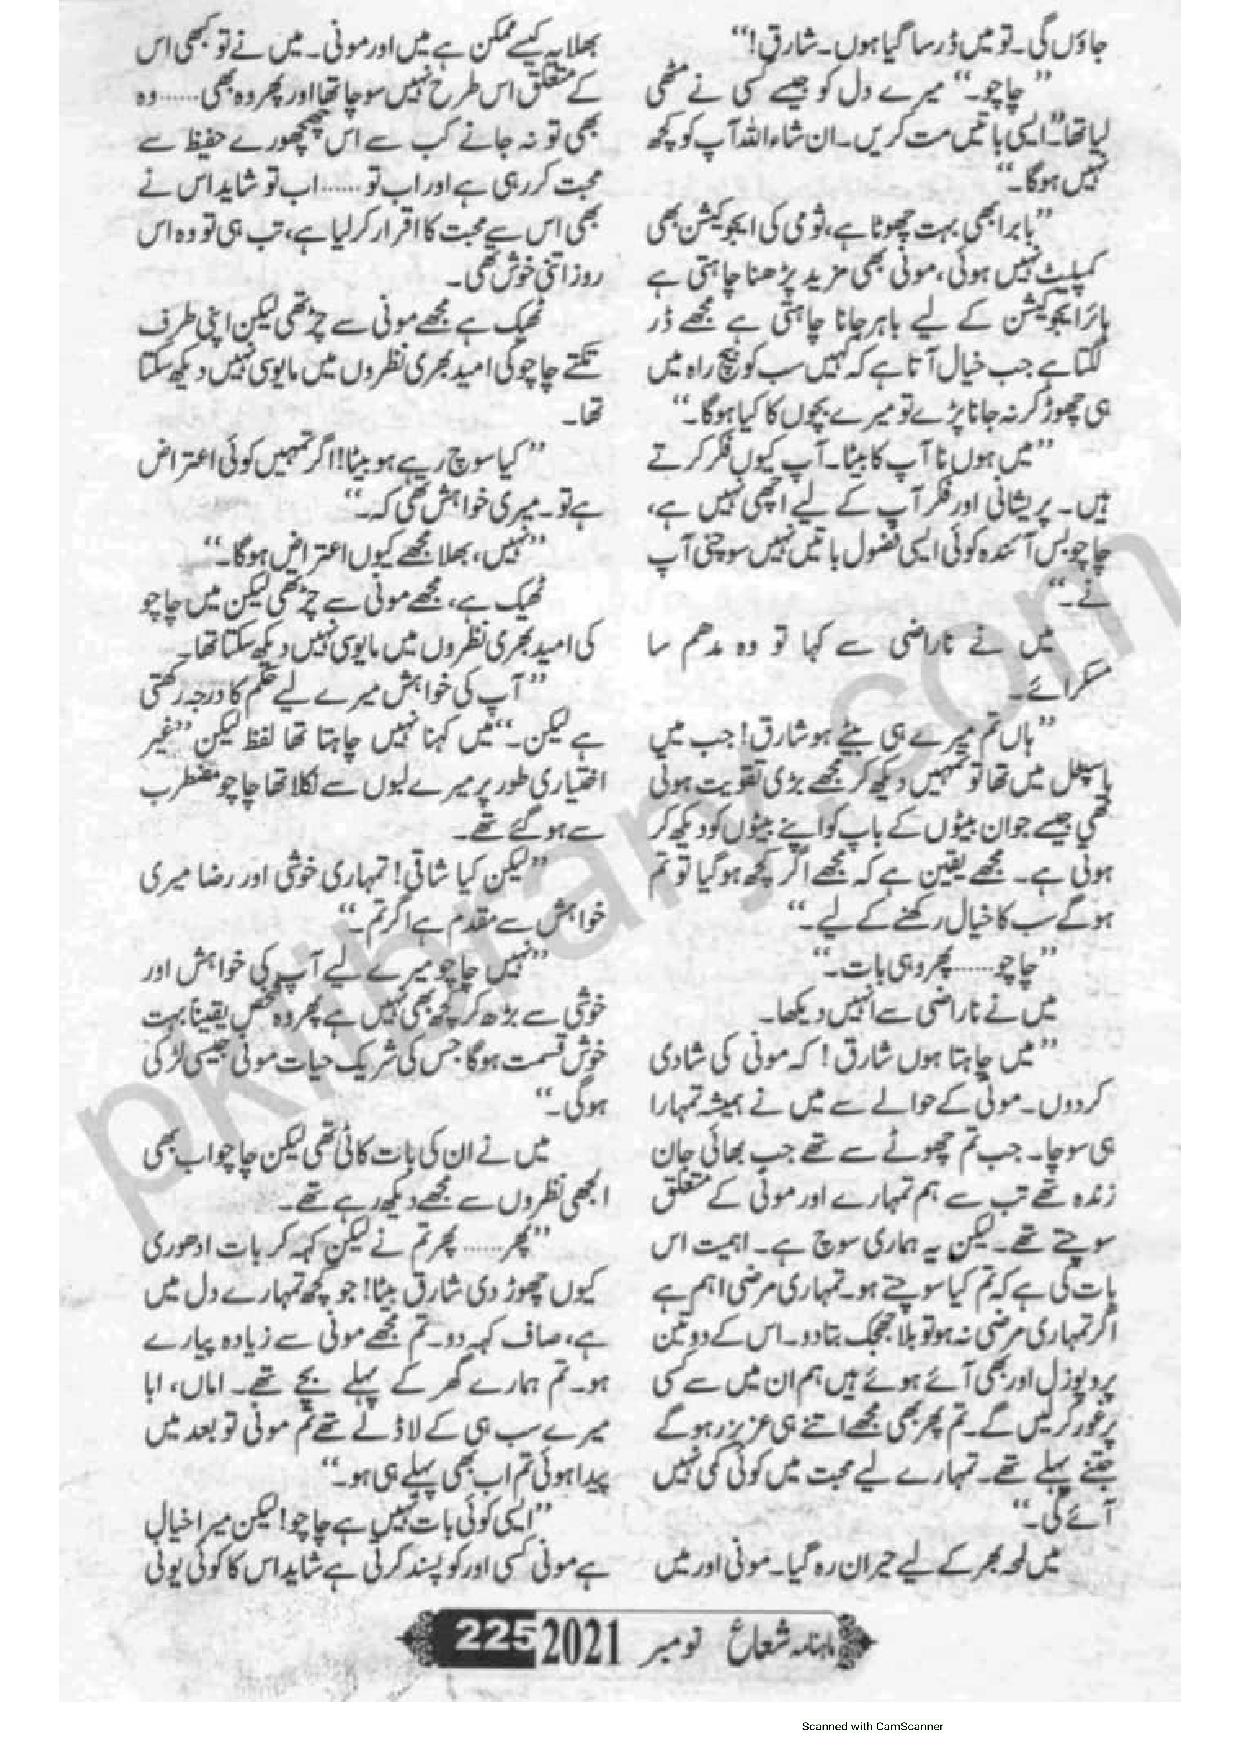 جاؤں گی۔ تو میں ڈر سا گیا ہوں۔ شارق!“
”چاچو۔“ میرے دل کو جیسے کسی نے مٹھی
لیا تھا۔ ”ایسی باتیں مت کریں۔ ان شاءاللہ آپ کو کچھ
نہیں ہوگا۔“
”بابر ابھی بہت چھوٹا ہے، ثومی کی ایجوکیشن بھی
کمپلیٹ نہیں ہوئی، مونی بھی مزید پڑھنا چاہتی ہے
ہائر ایجوکیشن کے لیے باہر جانا چاہتی ہے مجھے ڈر
لگتا ہے جب خیال آتا ہے کہ کہیں سب کو بیچ راہ میں
ہی چھوڑ کر نہ جانا پڑے تو میرے بچوں کا کیا ہوگا۔“
”میں ہوں نا آپ کا بیٹا۔ آپ کیوں فکر کرتے
ہیں۔ پریشانی اور فکر آپ کے لیے اچھی نہیں ہے،
چاچو بس آئندہ کوئی ایسی فضول باتیں نہیں سوچنی آپ
نے۔“
میں نے ناراضی سے کہا تو وہ مدھم سا
مسکرائے۔
”ہاں تم میرے ہی بیٹے ہو شارق! جب میں
ہاسپٹل میں تھا تو تمہیں دیکھ کر مجھے بڑی تقویت ہوئی
تھی جیسے جوان بیٹوں کے باپ کو اپنے بیٹوں کو دیکھ کر
ہوتی ہے۔ مجھے یقین ہے کہ مجھے اگر کچھ ہو گیا تو تم
ہو گے سب کا خیال رکھنے کے لیے۔“
”چاچو...... پھر وہی بات۔“
میں نے ناراضی سے انہیں دیکھا۔
”میں چاہتا ہوں شارق! کہ مونی کی شادی
کردوں۔ مونی کے حوالے سے میں نے ہمیشہ تمہارا
ہی سوچا۔ جب تم چھوٹے سے تھے جب بھائی جان
زندہ تھے تب سے ہم تمہارے اور مونی کے متعلق
سوچتے تھے۔ لیکن یہ ہماری سوچ ہے۔ اہمیت اس
بات کی ہے کہ تم کیا سوچتے ہو۔ تمہاری مرضی اہم ہے
اگر تمہاری مرضی نہ ہو تو بلا جھجک بتا دو۔ اس کے دو تین
پروپوزل اور بھی آئے ہوئے ہیں ہم ان میں سے کسی
پر غور کرلیں گے۔ تم پھر بھی مجھے اتنے ہی عزیز رہو گے
جتنے پہلے تھے۔ تمہارے لیے محبت میں کوئی کمی نہیں
آئے گی۔“
میں لمحہ بھر کے لیے حیران رہ گیا۔ مونی اور میں
بھلا یہ کیسے ممکن ہے میں اور مونی۔ میں نے تو کبھی اس
کے متعلق اس طرح نہیں سوچا تھا اور پھر وہ بھی...... وہ
بھی تو نہ جانے کب سے اس چھچھورے حفیظ سے
محبت کر رہی ہے اور اب تو...... اب تو شاید اس نے
بھی اس سے محبت کا اقرار کر لیا ہے، تب ہی تو وہ اس
روز اتنی خوش تھی۔
ٹھیک ہے مجھے مونی سے چڑ تھی لیکن اپنی طرف
تکتے چاچو کی امید بھری نظروں میں مایوسی نہیں دیکھ سکتا
تھا۔
”کیا سوچ رہے ہو بیٹا!! اگر تمہیں کوئی اعتراض
ہے تو۔ میری خواہش تھی کہ۔“
”نہیں، بھلا مجھے کیوں اعتراض ہوگا۔“
ٹھیک ہے، مجھے مونی سے چڑ تھی لیکن میں چاچو
کی امید بھری نظروں میں مایوسی نہیں دیکھ سکتا تھا۔
”آپ کی خواہش میرے لیے حکم کا درجہ رکھتی
ہے لیکن۔“ میں کہنا نہیں چاہتا تھا لفظ لیکن ”غیر
اختیاری طور پر میرے لبوں سے نکلا تھا چاچو مضطرب
سے ہو گئے تھے۔
”لیکن کیا شاقی! تمہاری خوشی اور رضا میری
خواہش سے مقدم ہے اگر تم۔“
”نہیں چاچو میرے لیے آپ کی خواہش اور
خوشی سے بڑھ کر کچھ بھی نہیں ہے پھر وہ شخص یقیناً بہت
خوش قسمت ہوگا جس کی شریک حیات مونی جیسی لڑکی
ہوگی۔“
میں نے ان کی بات کاٹی تھی لیکن چاچو اب بھی
الجھی نظروں سے مجھے دیکھ رہے تھے۔
”پھر...... پھر تم نے لیکن کہہ کر بات ادھوری
کیوں چھوڑ دی شارق بیٹا! جو کچھ تمہارے دل میں
ہے، صاف کہہ دو۔ تم مجھے مونی سے زیادہ پیارے
ہو۔ تم ہمارے گھر کے پہلے بچے تھے۔ اماں، ابا
میرے سب ہی کے لاڈلے تھے تم مونی تو بعد میں
پیدا ہوئی تم اب بھی پہلے ہی ہو۔“
”ایسی کوئی بات نہیں ہے چاچو! لیکن میرا خیال
ہے مونی کسی اور کو پسند کرتی ہے شاید اس کا کوئی یونی
ماہنامہ شعاع نومبر 2021 225
pklibrary.com
Scanned with CamScanner